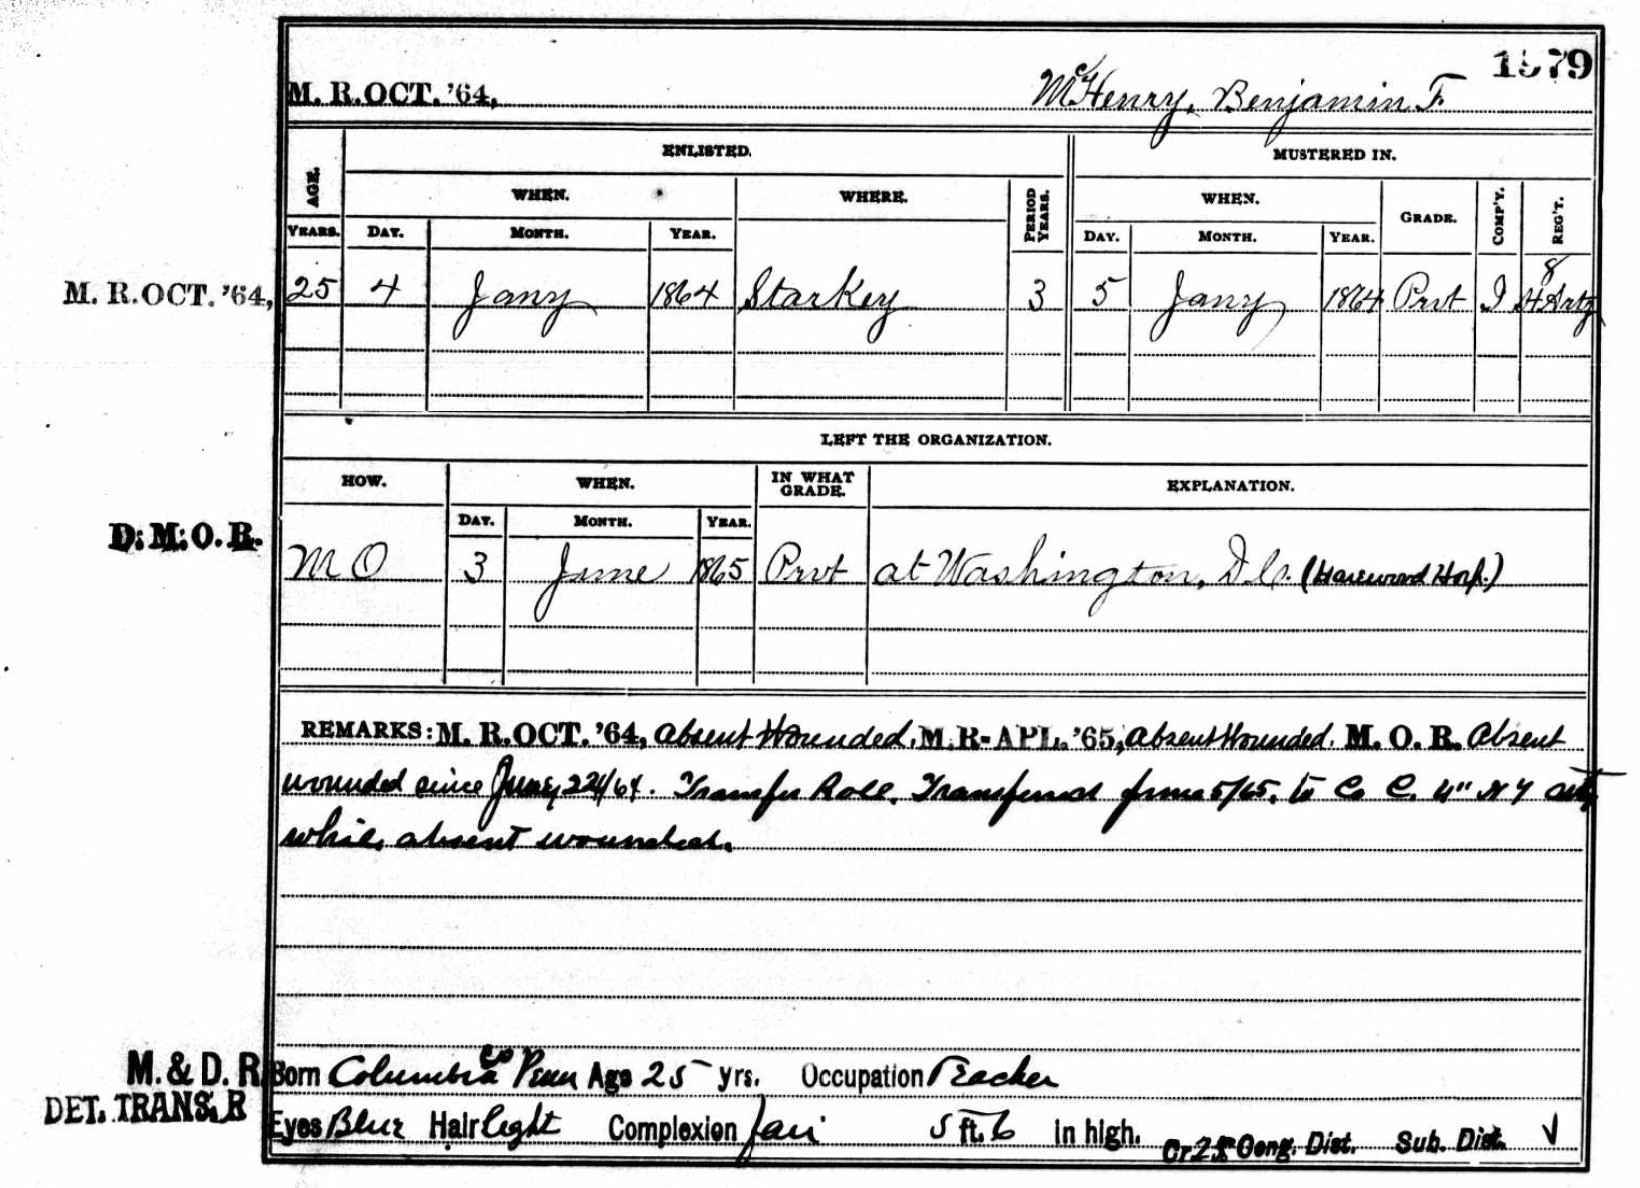 1579
M. R. OCT. '64, McHenry, Benjamin F.
ENLISTED. MUSTERED IN.
AGE. WHEN. WHERE. PERIOD YEARS. WHEN. GRADE. COMP'Y. REG'T.
YEARS. DAY. MONTH. YEAR. DAY. MONTH. YEAR.
M. R. OCT. '64, 25 4 Jany 1864 Starkey 3 5 Jany 1864 Prvt I 8 H Arty
LEFT THE ORGANIZATION.
HOW. WHEN. IN WHAT GRADE. EXPLANATION.
DAY. MONTH. YEAR.
D. M. O. R. M O 3 June 1865 Prvt at Washington, D.C. (Harewood Hosp.)
REMARKS: M. R. OCT. '64, absent Wounded, M. R- APL. '65, absent Wounded. M. O. R. Absent
wounded since June 22/64. Transfer Roll. Transferred June 5/65, to Co C. 4" N Y Arty
while absent wounded.
M. & D. R. Born Columbia Co Penn Age 25 yrs. Occupation Teacher
DET. TRANS. R Eyes Blue Hair light Complexion fair 5 ft. 6 in high. Cr 25 Cong. Dist. Sub. Dist. √